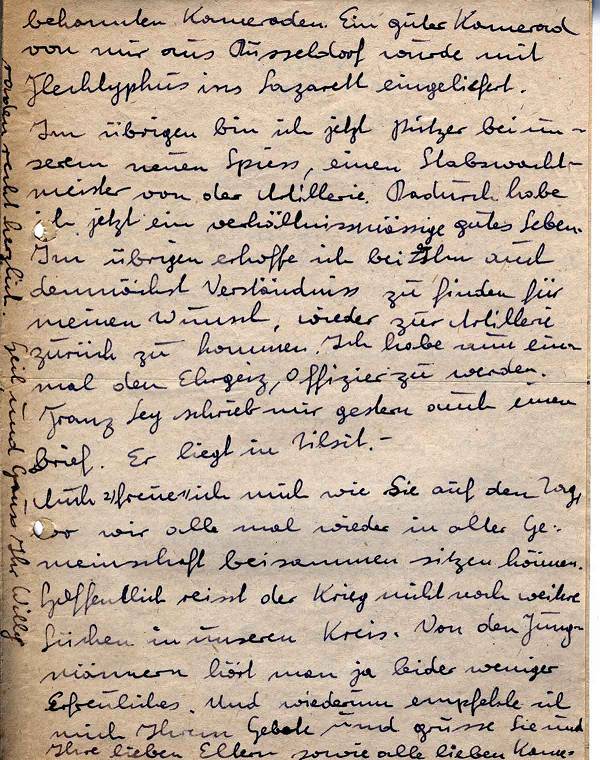 bekannten Kameraden. Ein guter Kamerad
von mir aus Düsseldorf wurde mit
Flecktyphus ins Lazarett eingeliefert.
Im übrigen bin ich jetzt Putzer bei un-
serem neuen Spiess, einen Stabswacht-
meister von der Artillerie. Dadurch habe
ich jetzt ein verhältnismässige gutes Leben.
Im übrigen erhoffe ich bei Ihm auch
demnächst Verständniss zu finden für
meinen Wunsch, wieder zur Artillerie
zurück zu kommen. Ich habe nun ein-
mal den Ehrgerz, Offizier zu werden.
Franz Ley schrieb mir gestern auch einen
brief. Er liegt in Tilsit.-
Auch 2) freue 1) ich mich wie Sie auf den Tag,
wo wir alle mal wieder in alter Ge-
meinschaft beisammen sitzen können.
Hoffentlich reisst der Krieg nicht noch weitere
Lücken in unseren Kreis. Von den Jung-
männern hört man ja leider weniger
Erfreuliches. Und wiederum empfehle ich
mich Ihrem Gebete und grüsse Sie und
Ihre lieben Eltern sowie alle lieben Kame-
raden recht herzlich. Heil und Gruss Ihr Willy